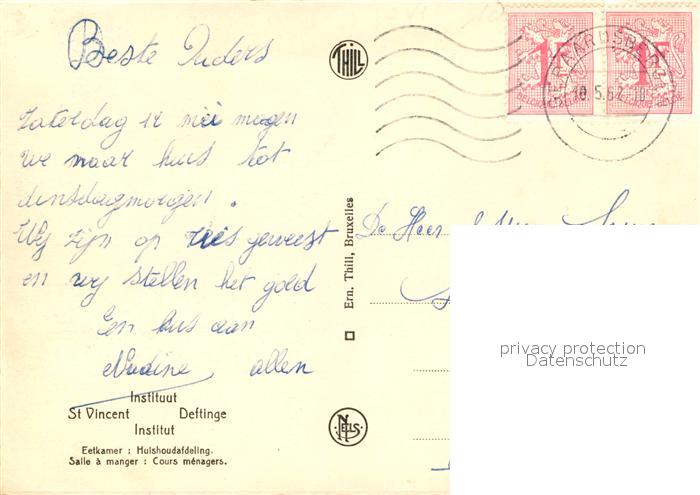 Beste Ouders
Zaterdag 12 mei mogen
we naar huis tot
dinsdagmorgen.
Wij zijn op reis geweest
en wij stellen het goed
Een kus aan
Nadine allen
Instituut
St Vincent Deftinge
Institut
Eetkamer : Huishoudafdeling.
Salle à manger : Cours ménagers.
THILL
Ern. Thill, Bruxelles
NELS
GERAARDSBERGEN
10.5.62
De Heer
privacy protection
Datenschutz